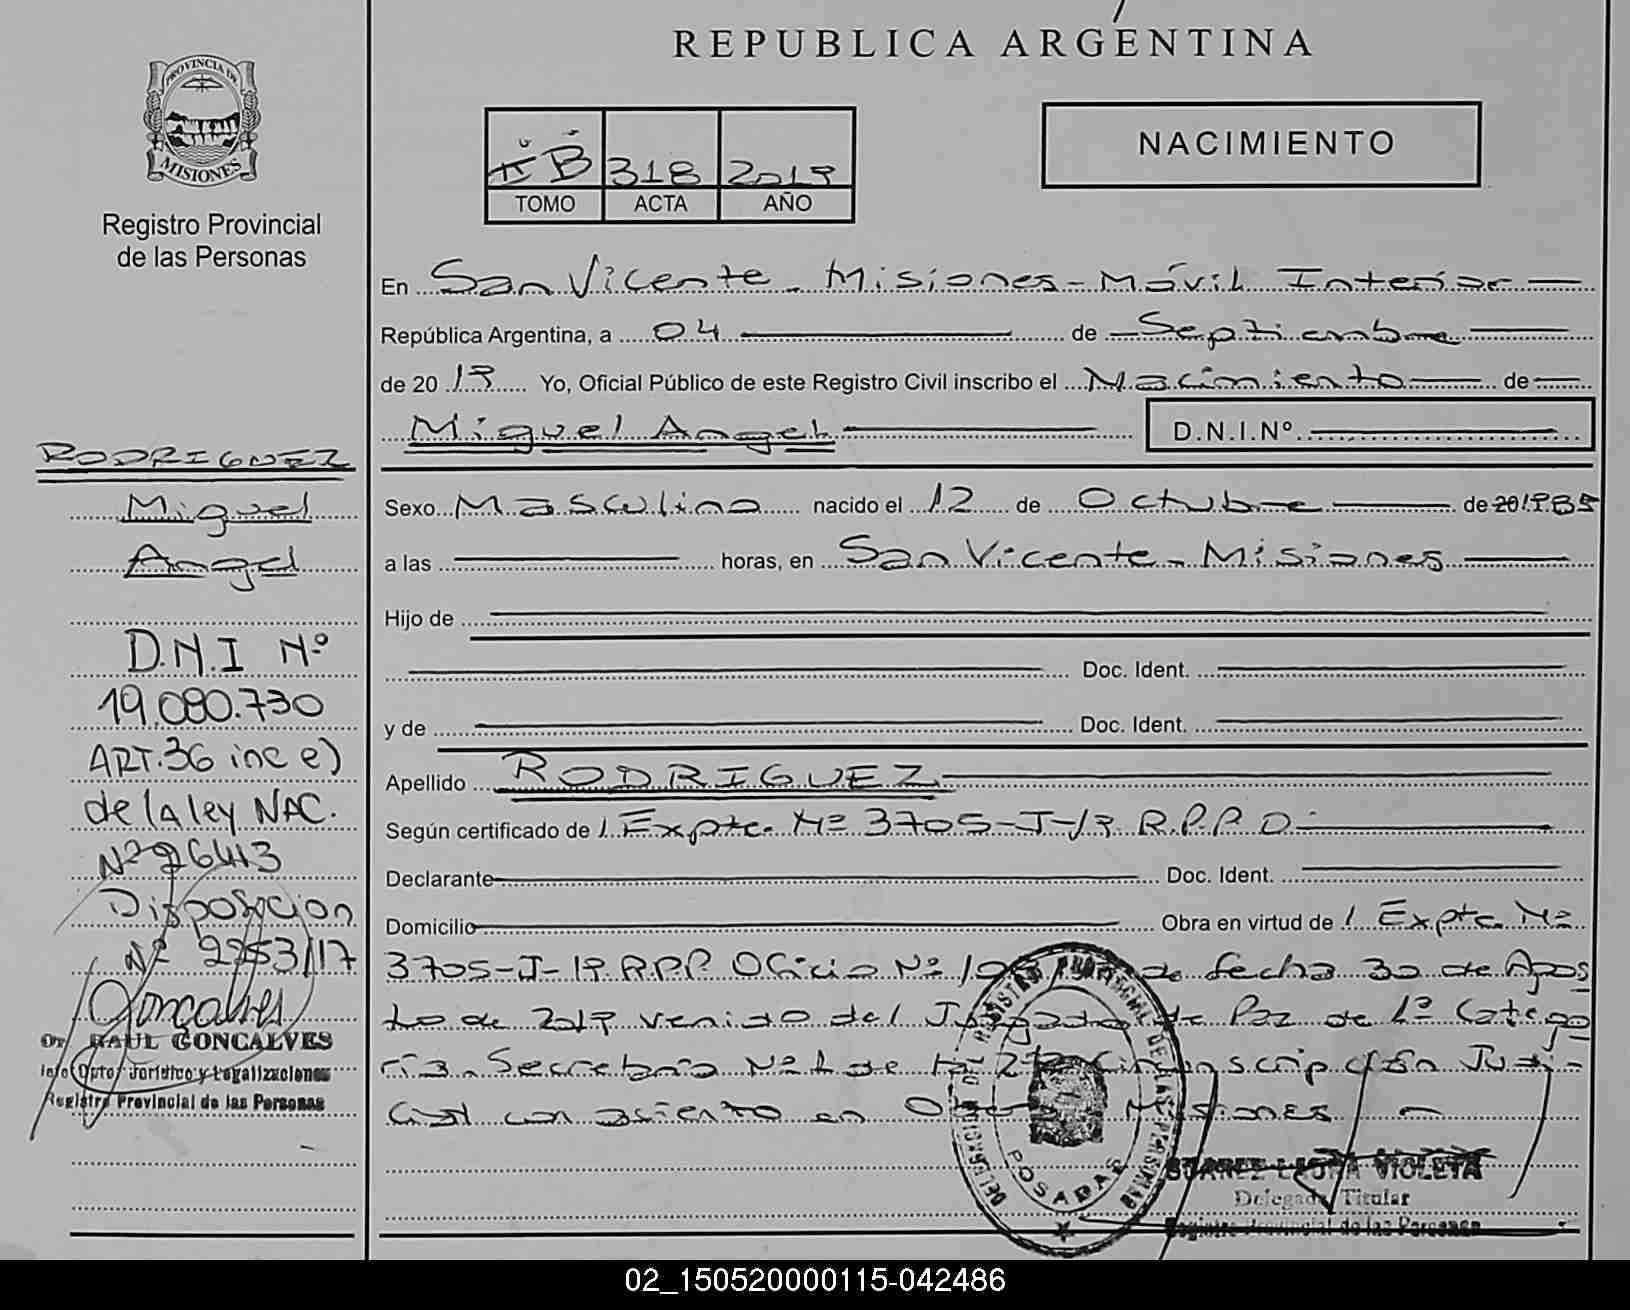 REPUBLICA ARGENTINA
PROVINCIA DE
MISIONES
Registro Provincial
de las Personas
B 318 2017
TOMO ACTA AÑO
NACIMIENTO
En San Vicente - Misiones - Móvil Interior
República Argentina, a 04 de Septiembre
de 20 17 Yo, Oficial Público de este Registro Civil inscribo el Nacimiento de
Miguel Angel D.N.I.Nº
Sexo Masculino nacido el 12 de Octubre de 20/1985
a las horas, en San Vicente - Misiones
Hijo de
Doc. Ident.
y de Doc. Ident.
Apellido RODRIGUEZ
Según certificado de / Expte. Nº 3705-J-17 R.P.P.
Declarante Doc. Ident.
Domicilio Obra en virtud de / Expte Nº
3705-J-17 R.P.P. Oficio Nº de fecha 30 de Agos
to de 2017 venido del Juzgado de Paz de 1ª Catego
ría Secretaría Nº 1 de la 2da Circunscripción Judi-
cial con asiento en Oberá Misiones
RODRIGUEZ
Miguel
Angel
D.N.I Nº
19.080.730
ART.36 inc e)
de la ley NAC.
Nº 26413
Disposición
Nº 2253/17
Goncalves
Dr RAUL GONCALVES
Jefe Dpto. Jurídico y Legalizaciones
Registro Provincial de las Personas
DELEGACION DEL REGISTRO PROVINCIAL DE LAS PERSONAS
POSADAS
SUAREZ LAURA VIOLETA
Delegada Titular
Registro Provincial de las Personas
02_150520000115-042486